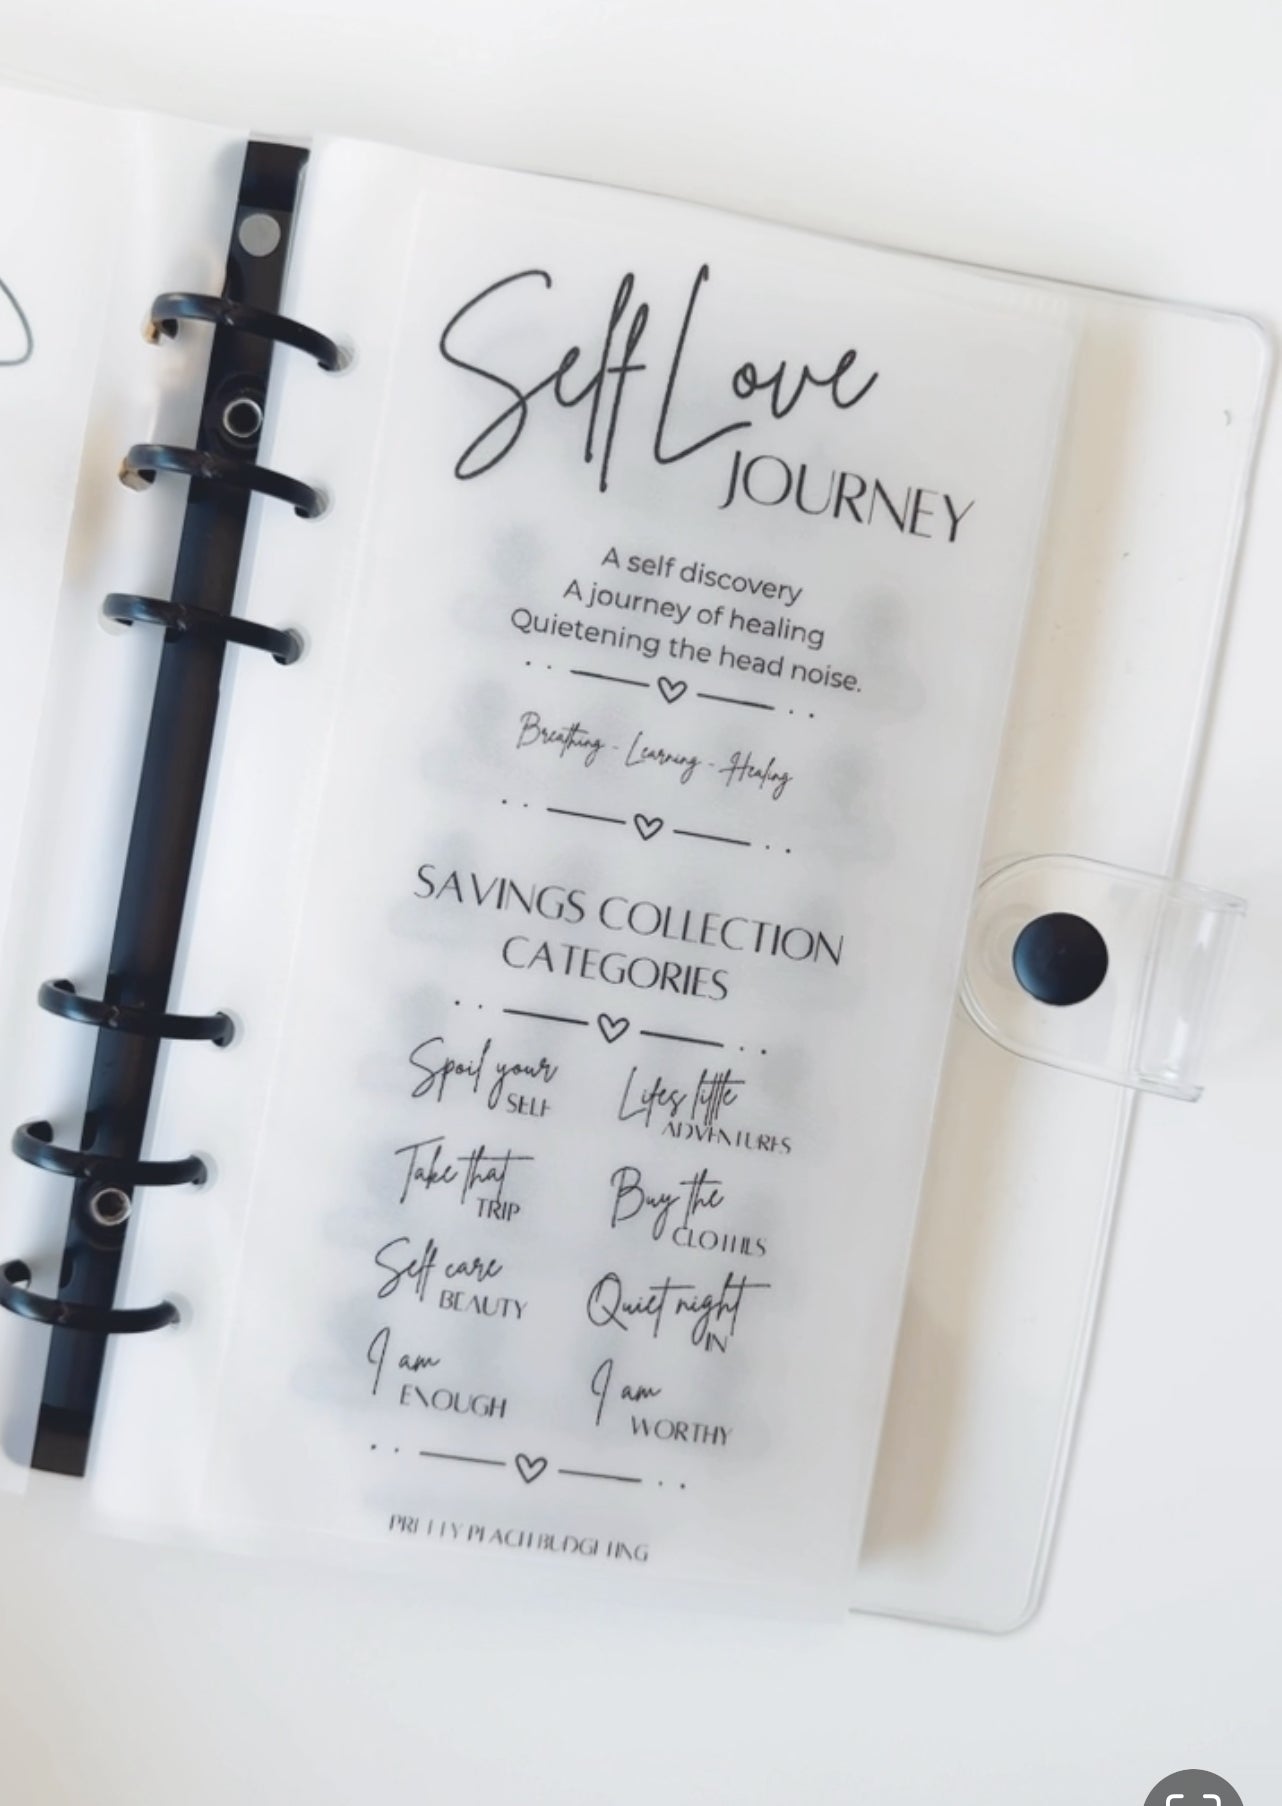 Self Love
JOURNEY
A self discovery
A journey of healing
Quietening the head noise.
Breathing - Learning - Healing
SAVINGS COLLECTION
CATEGORIES
Spoil your
SELF
Lifes little
ADVENTURES
Take that
TRIP
Buy the
CLOTHES
Self care
BEAUTY
Quiet night
IN
I am
ENOUGH
I am
WORTHY
PRETTY PEACH BUDGETING